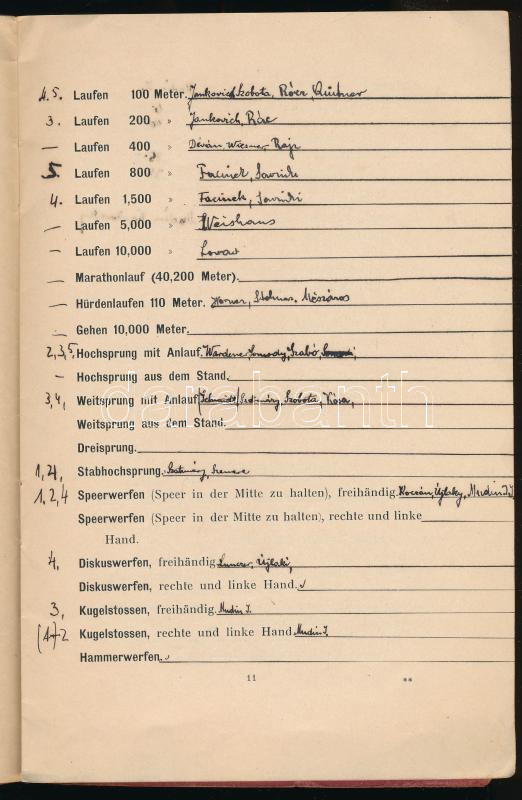 4. 5. Laufen 100 Meter. Jankovich, Szobota, Rácz,
3. Laufen 200 » Jankovich, Rácz
— Laufen 400 » Déván, Wiesner
5. Laufen 800 » Facinek, Savniki
4. Laufen 1,500 » Facinek, Savniki
— Laufen 5,000 » Weishaus
— Laufen 10,000 » Lovas
— Marathonlauf (40,200 Meter).
— Hürdenlaufen 110 Meter. Solymár, Mészáros
— Gehen 10,000 Meter.
2, 3, 5, Hochsprung mit Anlauf. Wardener, Somody, Szabó,
— Hochsprung aus dem Stand.
3, 4, Weitsprung mit Anlauf (Schmidt) Szatmáry, Szobota, Kósa,
Weitsprung aus dem Stand.
Dreisprung.
1, 2, Stabhochsprung. Szatmáry, Szemere
1, 2, 4 Speerwerfen (Speer in der Mitte zu halten), freihändig. Koczán, Ujlaky, Mudin I.
Speerwerfen (Speer in der Mitte zu halten), rechte und linke
Hand.
4, Diskuswerfen, freihändig. Luntzer, Ujlaki,
Diskuswerfen, rechte und linke Hand.
3, Kugelstossen, freihändig. Mudin I.
(1)-2 Kugelstossen, rechte und linke Hand. Mudin I.
Hammerwerfen.
11 **
darabanth